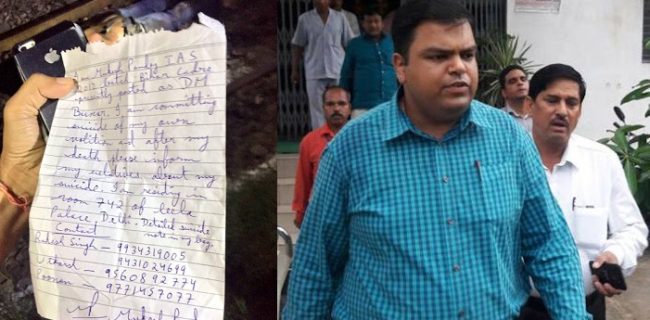 I am Mukesh Pandey IAS
2012 batch Bihar Cadre
presently posted as DM
Buxar. I am committing
suicide of my own
volition and after my
death please inform
my relatives about my
suicide. I am resting in
room 742 of leela
Palace, Delhi. Detailed suicide
note in my bag.
Contact
Rakesh Singh - 9934319005
9431024699
9560892774
Poonam - 9771457077